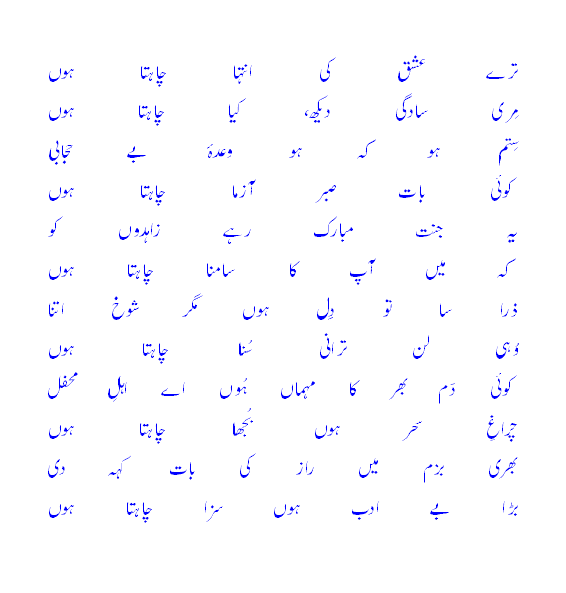 ترے عشق کی انتہا چاہتا ہوں
مِری سادگی دیکھ، کیا چاہتا ہوں
سِتم ہو کہ ہو وعدۂ بے حجابی
کوئی بات صبر آزما چاہتا ہوں
یہ جنت مبارک رہے زاہدوں کو
کہ میں آپ کا سامنا چاہتا ہوں
ذرا سا تو دِل ہوں مگر شوخ اتنا
وُہی لن ترانی سُنا چاہتا ہوں
کوئی دَم بھر کا مہماں ہُوں اے اہلِ محفل
چراغِ سحر ہوں بُجھا چاہتا ہوں
بھری بزم میں راز کی بات کہہ دی
بڑا بے ادب ہوں سزا چاہتا ہوں